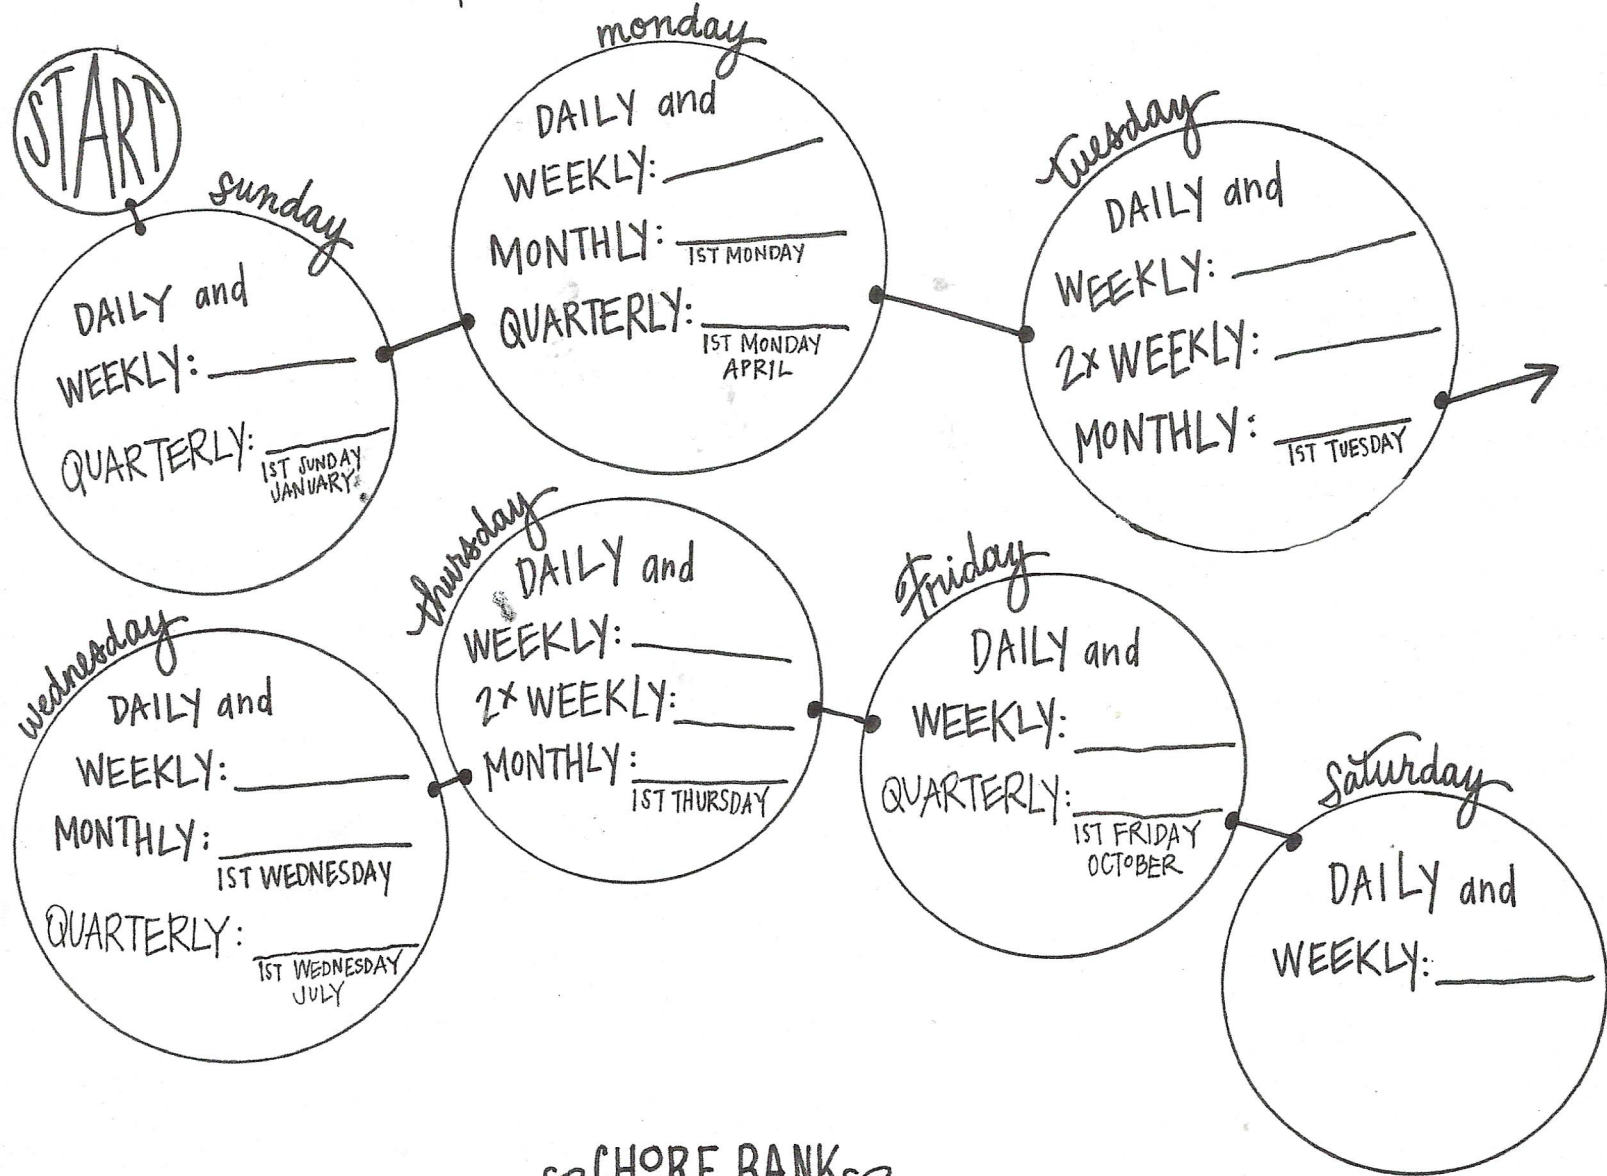 START
sunday
DAILY and
WEEKLY:
QUARTERLY:
1ST SUNDAY
JANUARY
monday
DAILY and
WEEKLY:
MONTHLY:
1ST MONDAY
QUARTERLY:
1ST MONDAY
APRIL
tuesday
DAILY and
WEEKLY:
2x WEEKLY:
MONTHLY:
1ST TUESDAY
wednesday
DAILY and
WEEKLY:
MONTHLY:
1ST WEDNESDAY
QUARTERLY:
1ST WEDNESDAY
JULY
thursday
DAILY and
WEEKLY:
2x WEEKLY:
MONTHLY:
1ST THURSDAY
Friday
DAILY and
WEEKLY:
QUARTERLY:
1ST FRIDAY
OCTOBER
saturday
DAILY and
WEEKLY:
CHORE BANK